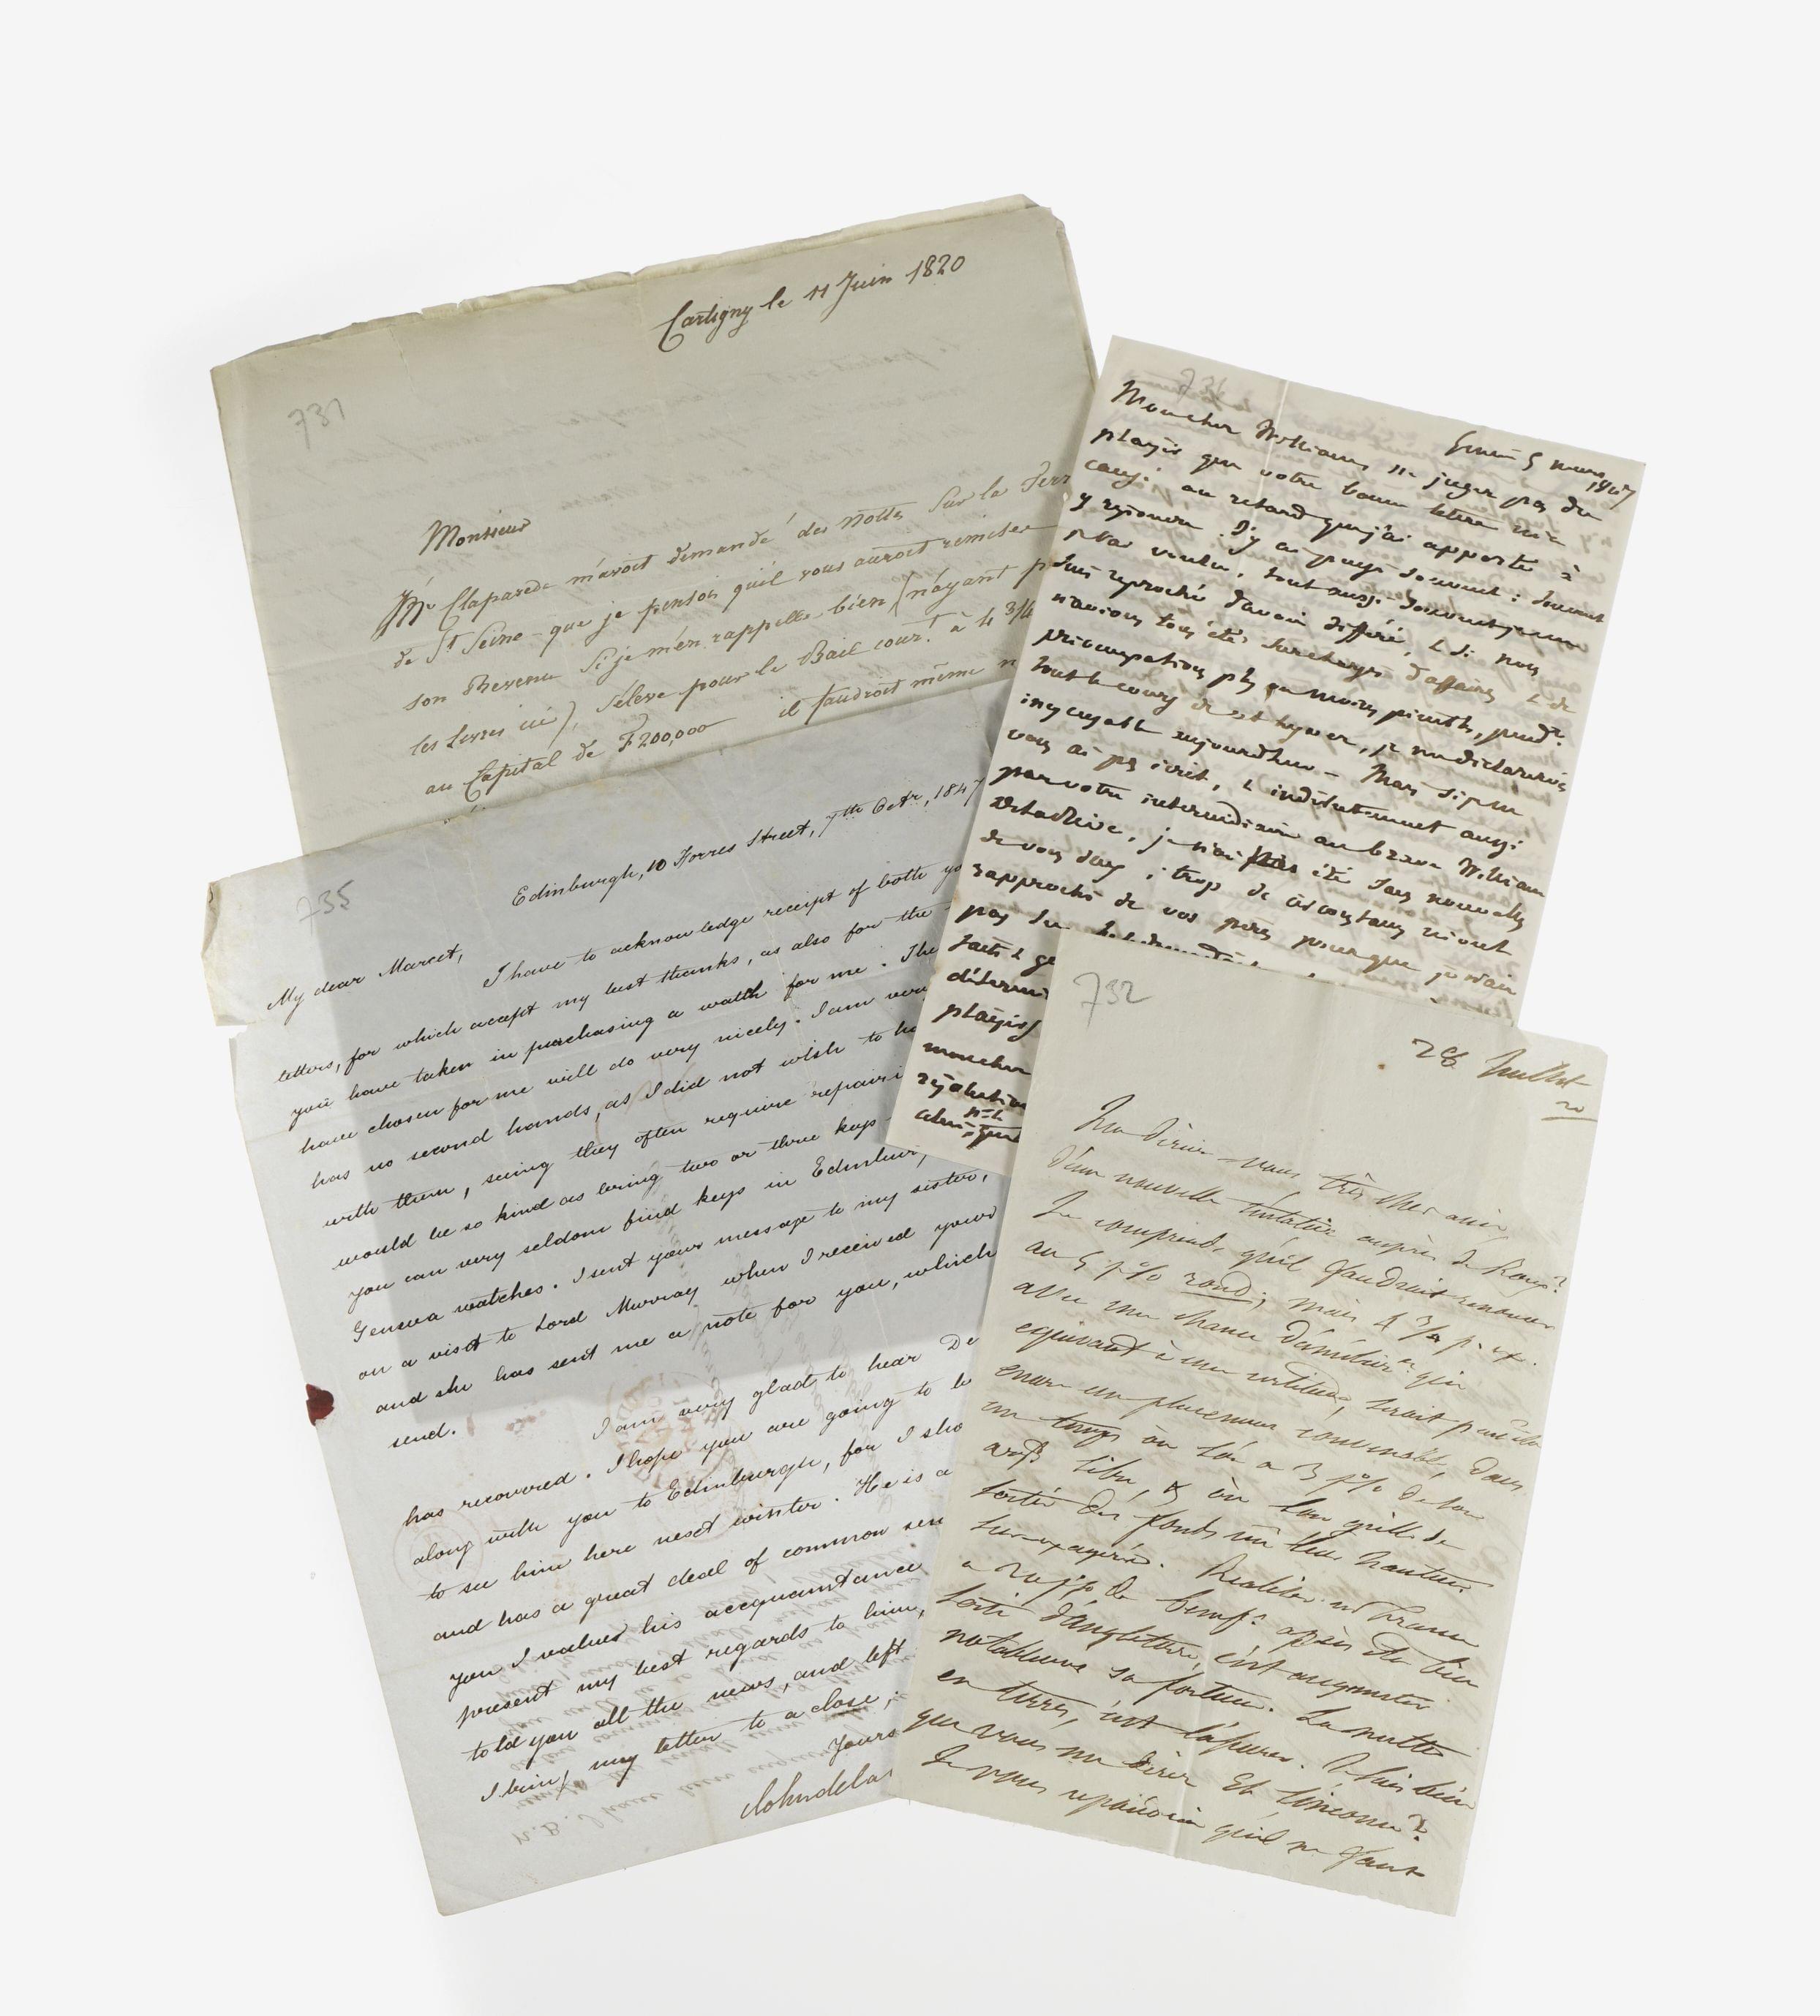 Cartigny le 11 Juin 1820
731
Monsieur
Mr. Claparede m'avoit demandé des Nottes Sur la Terr
de St. Seine - que je pensois qu'il vous auroit remises
son Revenu Si je m'en rappelle bien (n'ayant p
les Livres ici), s'éleve pour le Bail cour.t à 4 3/4
au Capital de F 200,000 il faudroit même
735
Edinburgh, 10 Forres Street, 7th Octr, 1847
My dear Marcet,
I have to acknowledge receipt of both yo
letters, for which accept my best thanks, as also for the
you have taken in purchasing a watch for me. The
have chosen for me will do very nicely. I am very
has no second hands, as I did not wish to ha
with them, seeing they often require repairi
would be so kind as bring two or three keys
you can very seldom find keys in Edinbur
Geneva watches. I sent your message to my sister,
on a visit to Lord Murray when I received yours
and she has sent me a note for you, which
send.
I am very glad to hear De
has recovered. I hope you are going to b
along with you to Edinburgh, for I sho
to see him here next winter. He is a
and has a great deal of common sen
you I value his acquaintance
present my best regards to him,
told you all the news, and left
I bring my letter to a close;
Yours
John dela
5 mars
1847
Mon cher William, ne jugez pas du
plaisir que votre bonne lettre m'a
causé au retard que j'ai apporté à
y répondre. J'y ai pensé souvent: souvent
voulu, tout aussi souvent je me
suis reproché d'avoir différé, & si nous
n'avions tous été surchargés d'affaires & de
préoccupations plus ou moins pénibles, pend.t
tout le cours de cet hyver, je me déclarerois
inexcusable aujourdhui - Mais si je ne
vous ai pas écrit, & indirectement aussi
par votre intermédiaire au brave William
Delarive, je n'ai pas été sans nouvelles
de vous deux; trop de circonstances m'ont
rapproché de vos pères pour que je n'aie
pas
faits & ge
détermi
plaisir
mon cher
732
28 Juillet
20
Ma dernière vous très cher ami,
d'une nouvelle tentative auprès de
Je comprends qu'il faudrait renoncer
au 5 p% rond; mais 4 3/4 p.
avec une chance d'amélior.on qui
équivaut à une certitude, serait
encore un placement convenable, dans
un temps où l'on a 3 p% de son
arg.t libre, & où l'on grille de
sortir des fonds vu leur hauteur
exagérée. Réaliser en France
à p% de benef.ce après
sorti d'angleterre, c'est augmenter
notablement sa fortune. La mettre
en terres, c'est l'assurer. Je sais bien
que vous me direz Et l'inconnu?
Je vous répondrai qu'il ne faut